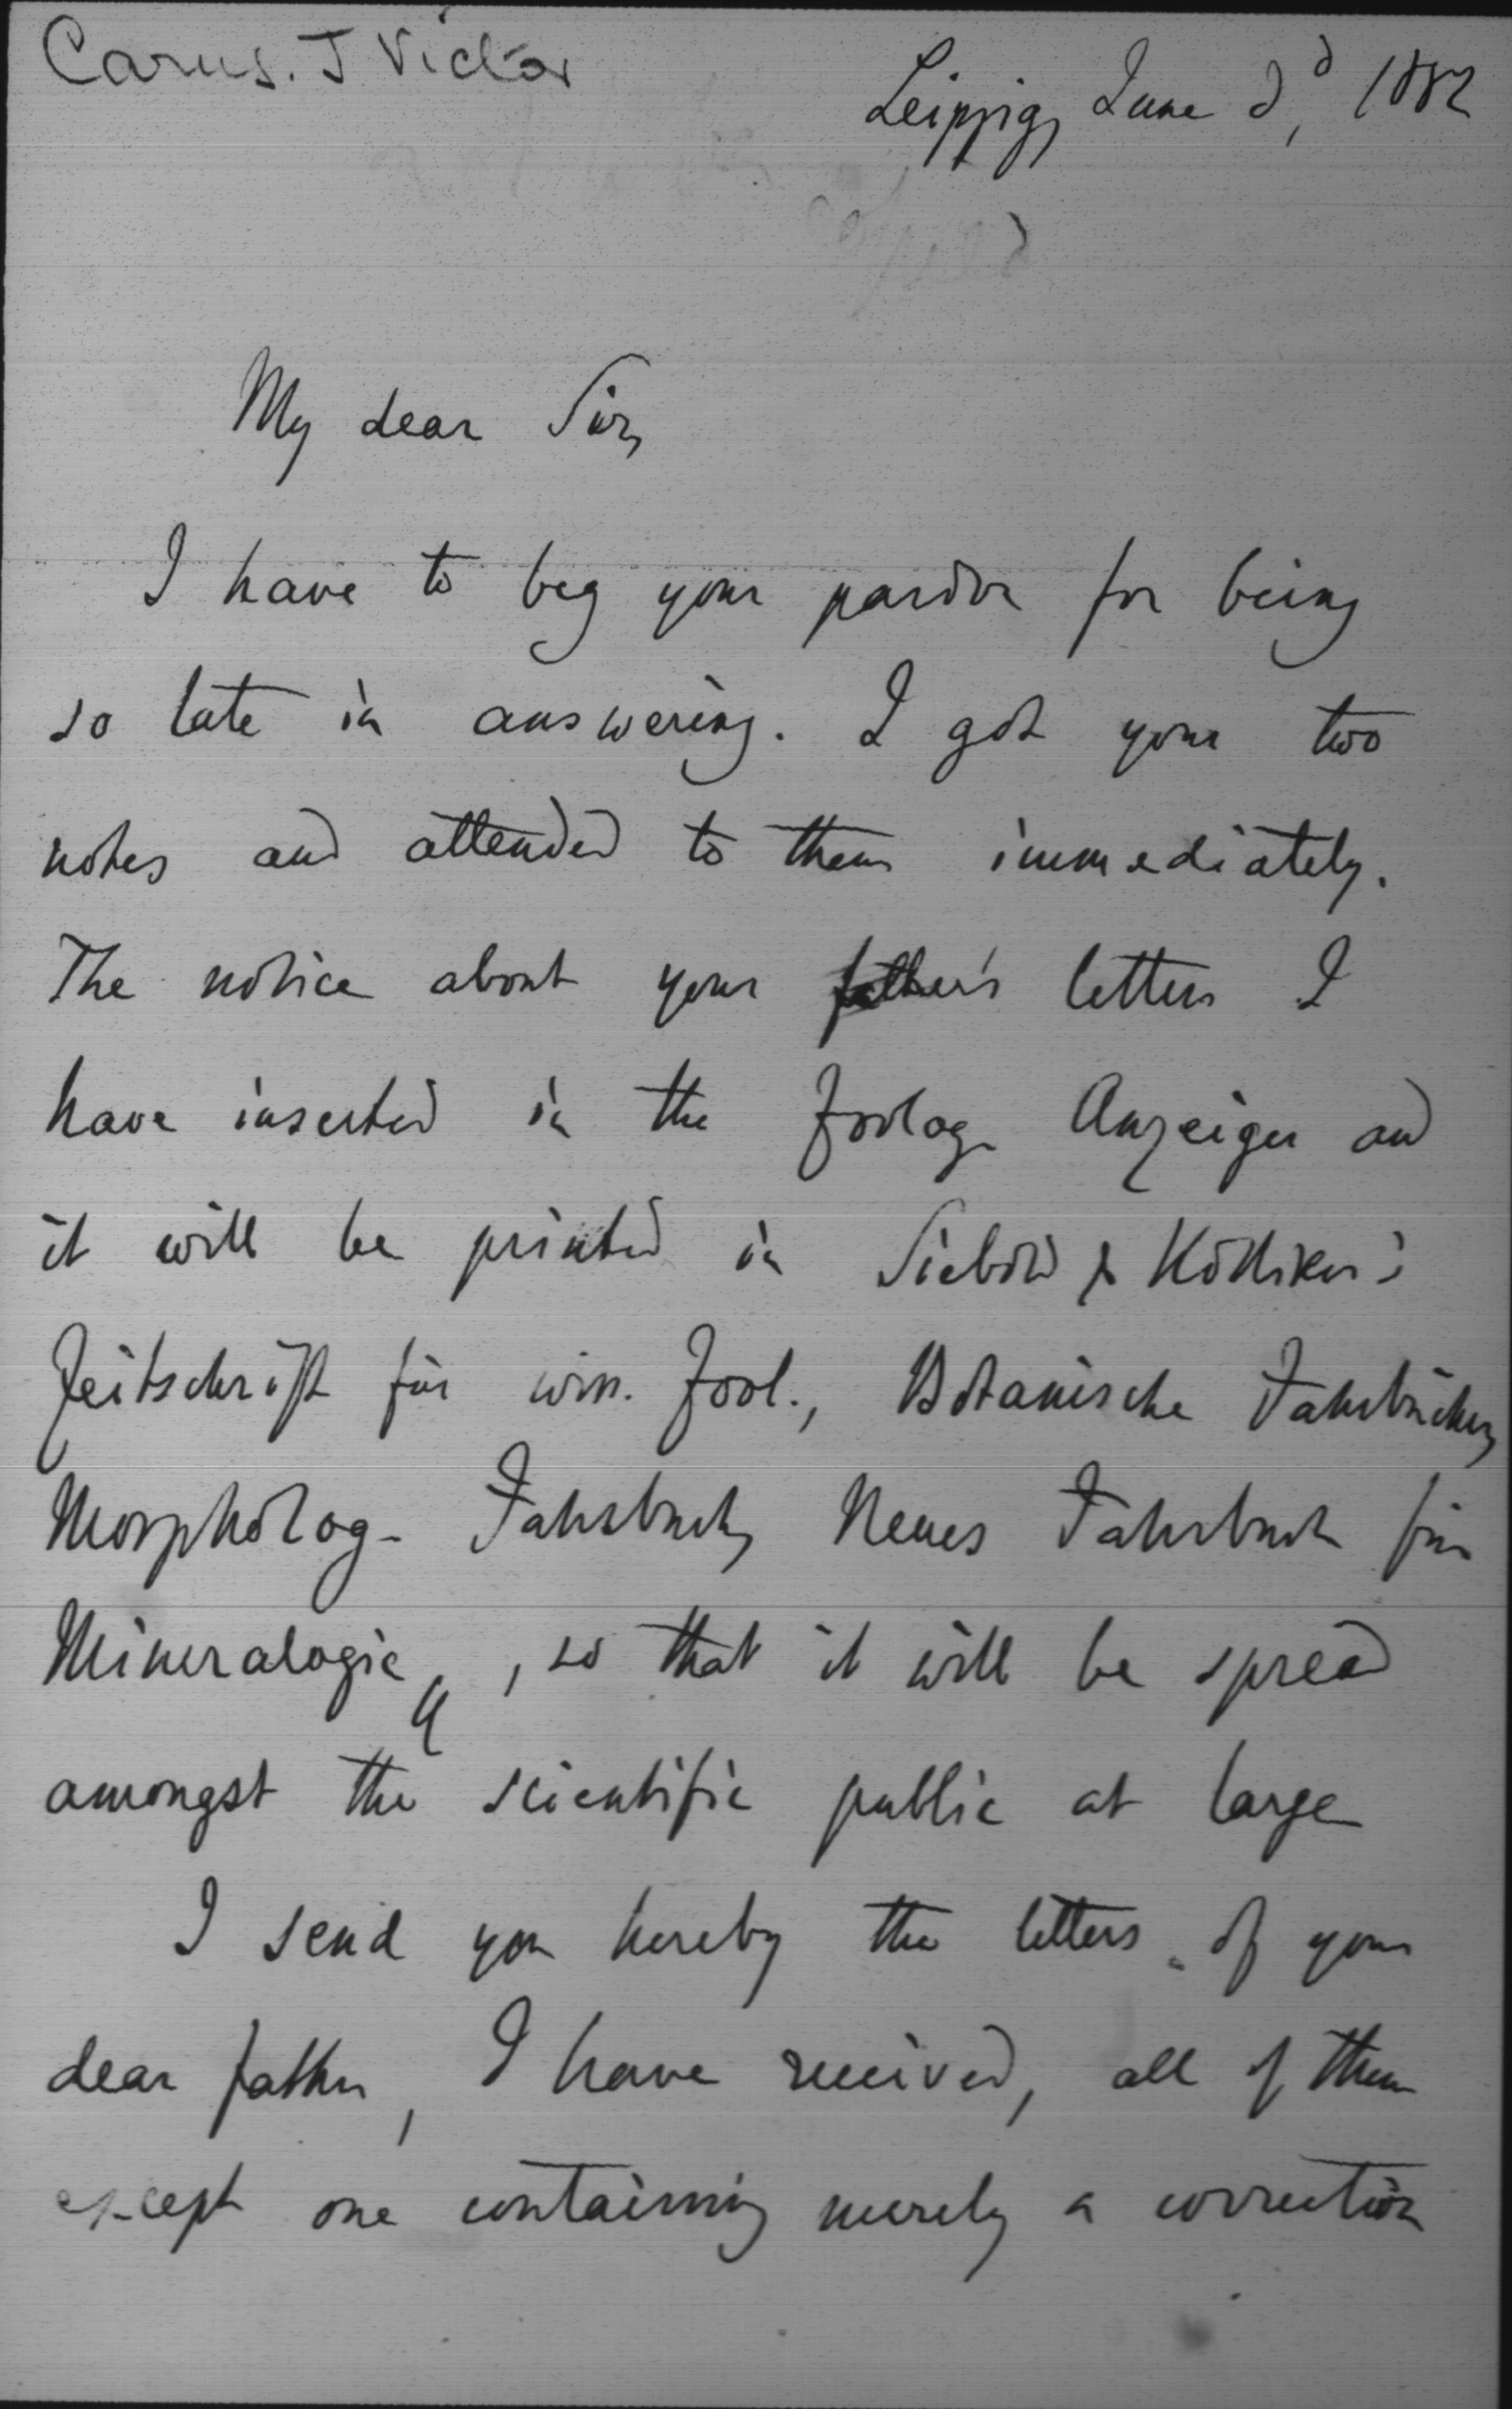 Carus. J Victor
Leipzig, June 3d, 1882
Copied
My dear Sir,
I have to beg your pardon for being
so late in answering. I got your two
notes and attended to them immediately.
The notice about your father's letters I
have inserted in the Zoolog. Anzeiger and
it will be printed in Siebold & Kölliker's
Zeitschrift für wiss. Zool., Botanische Jahrbücher,
Morpholog. Jahrbuch, Neues Jahrbuch für
Mineralogie, so that it will be spread
amongst the scientific public at large
I send you hereby the letters of your
dear father, I have received, all of them
except one containing merely a correction